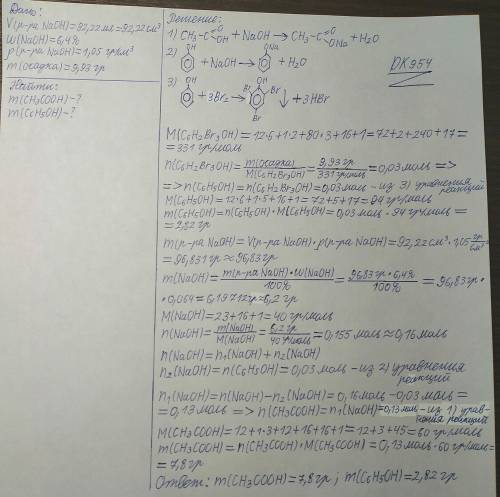 Дано:
V(р-ра NaOH)=92,22мл=92,22см³
W(NaOH)=6,4%
ρ(р-ра NaOH)=1,05 гр/см³
m(осадка)=9,93 гр
Найти:
m(CH₃COOH)-?
m(C₆H₅OH)-?
Решение:
1) CH₃-C O OH + NaOH → CH₃-C O ONa + H₂O
2) OH + NaOH → ONa + H₂O
3) OH + 3Br₂ → OH Br Br Br ↓ + 3HBr
DK954
M(C₆H₂Br₃OH)=12·6+1·2+80·3+16+1=72+2+240+17=
=331 гр/моль
n(C₆H₂Br₃OH)=m(осадка)/M(C₆H₂Br₃OH)=9,93гр/331гр/моль=0,03 моль =>
=> n(C₆H₅OH)=n(C₆H₂Br₃OH)=0,03моль-из 3) уравнения реакций
M(C₆H₅OH)=12·6+1·5+16+1=72+5+17=94 гр/моль
m(C₆H₅OH)=n(C₆H₅OH)·M(C₆H₅OH)=0,03 моль·94 гр/моль=
=2,82 гр
m(р-ра NaOH)=V(р-ра NaOH)·ρ(р-ра NaOH)=92,22см³·1,05 гр/см³=
=96,831гр≈96,83гр
m(NaOH)=m(р-ра NaOH)·W(NaOH)/100%=96,83гр·6,4%/100%=96,83гр·
·0,064=6,19712гр≈6,2гр
M(NaOH)=23+16+1=40 гр/моль
n(NaOH)=m(NaOH)/M(NaOH)=6,2гр/40гр/моль=0,155 моль≈0,16моль
n(NaOH)=n₁(NaOH)+n₂(NaOH)
n₂(NaOH)=n(C₆H₅OH)=0,03моль-из 2) уравнения реакций
n₁(NaOH)=n(NaOH)-n₂(NaOH)=0,16моль-0,03моль=
=0,13моль => n(CH₃COOH)=n₁(NaOH)=0,13моль-из 1) урав-
нения реакций
M(CH₃COOH)=12+1·3+12+16+16+1=12+3+45=60 гр/моль
m(CH₃COOH)=n(CH₃COOH)·M(CH₃COOH)=0,13моль·60гр/моль=
=7,8гр
Ответ: m(CH₃COOH)=7,8гр; m(C₆H₅OH)=2,82гр